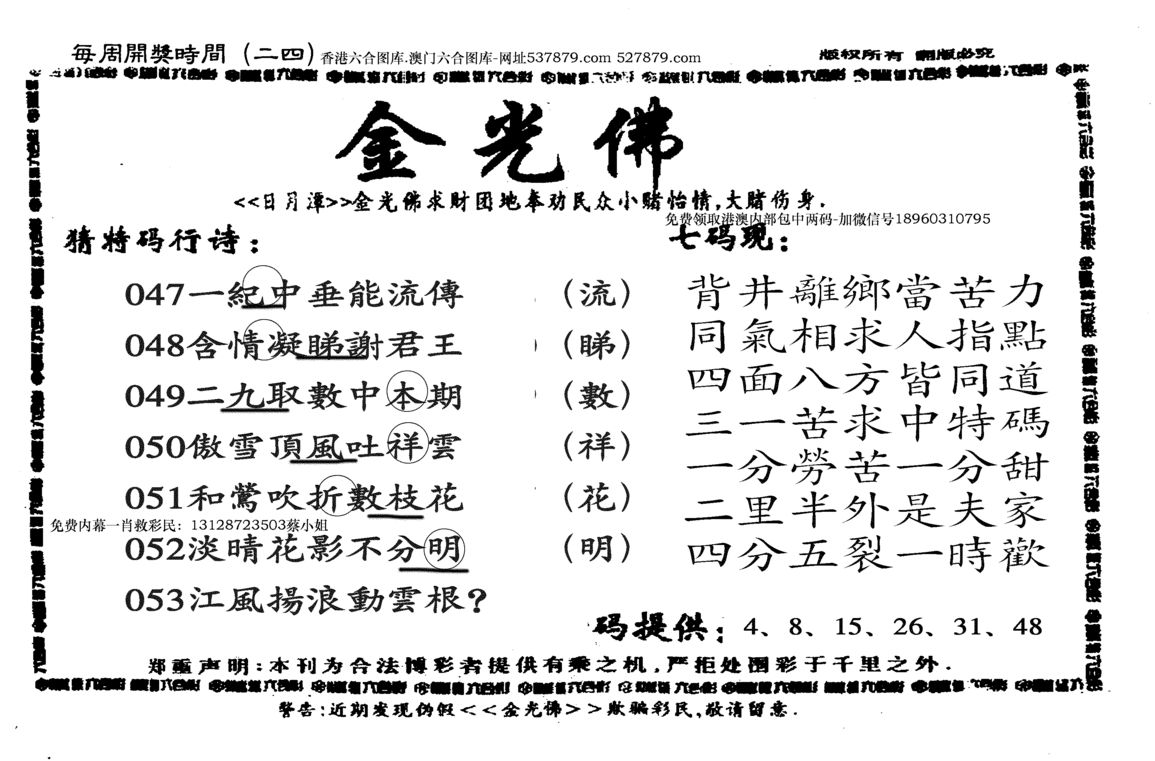 每周開獎時間（二四）香港六合图库.澳门六合图库-网址537879.com 527879.com
版权所有 翻版必究
金光佛
<<日月潭>>金光佛求财团地奉劝民众小赌怡情,大赌伤身.
免费领取港澳内部包中两码-加微信号18960310795
猜特码行诗：
047一紀中垂能流傳 （流）
048含情凝睇謝君王 （睇）
049二九取數中本期 （數）
050傲雪頂風吐祥雲 （祥）
051和鶯吹折數枝花 （花）
免费内幕一肖救彩民：13128723503蔡小姐
052淡晴花影不分明 （明）
053江風揚浪動雲根?
七码现：
背井離鄉當苦力
同氣相求人指點
四面八方皆同道
三一苦求中特碼
一分勞苦一分甜
二里半外是夫家
四分五裂一時歡
码提供：4、8、15、26、31、48
郑重声明:本刊为合法博彩者提供有乘之机,严拒处图彩于千里之外.
警告:近期发现伪假<<金光佛>>欺骗彩民,敬请留意.